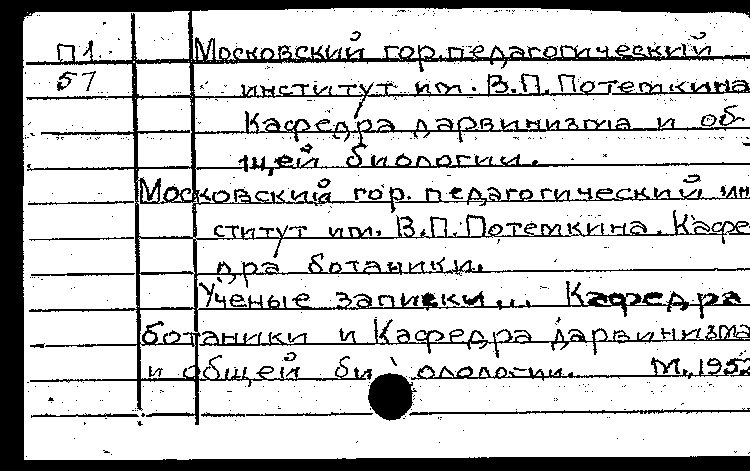 П1 Московский гор.педагогический
57 институт им. В.П.Потемкина
Кафедра дарвинизма и об-
щей биологии.
Московский гор. педагогический ин
ститут им. В.П.Потемкина. Кафе
дра ботаники.
Ученые записки... Кафедра
ботаники и Кафедра дарвинизма
и общей би ологии. М.,195